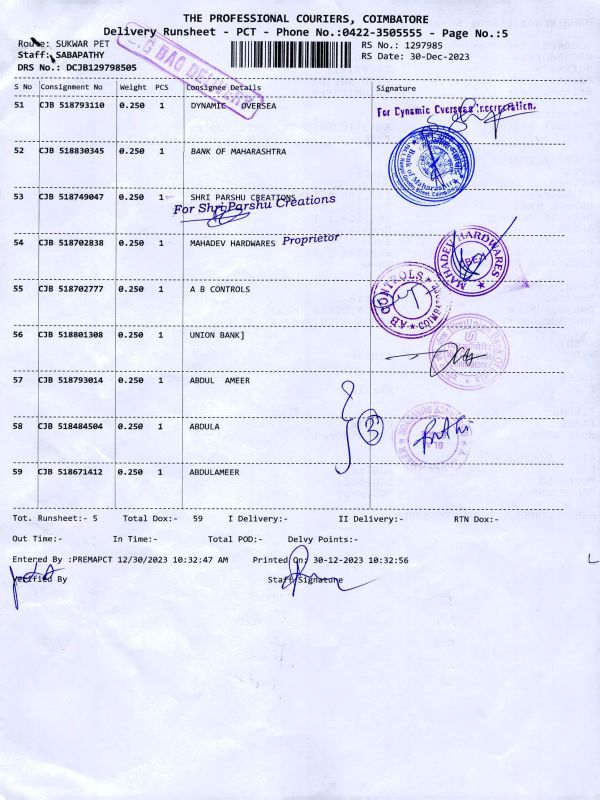 THE PROFESSIONAL COURIERS, COIMBATORE
Delivery Runsheet - PCT - Phone No.:0422-3505555 - Page No.:5
Route: SUKWAR PET RS No.: 1297985
Staff: SABAPATHY RS Date: 30-Dec-2023
DRS No.: DCJB129798505
BAG DELIVERY
S No Consignment No Weight PCS Consignee Details Signature
51 CJB 518793110 0.250 1 DYNAMIC OVERSEA
For Dynamic Overseas Incorporation.
52 CJB 518830345 0.250 1 BANK OF MAHARASHTRA
Bank of Maharashtra
53 CJB 518749047 0.250 1 SHRI PARSHU CREATIONS
For Shri Parshu Creations
54 CJB 518702838 0.250 1 MAHADEV HARDWARES Proprietor
MAHADEV HARDWARES
55 CJB 518702777 0.250 1 A B CONTROLS
AB CONTROLS
56 CJB 518801308 0.250 1 UNION BANK]
57 CJB 518793014 0.250 1 ABDUL AMEER
58 CJB 518484504 0.250 1 ABDULA
3
59 CJB 518671412 0.250 1 ABDULAMEER
Tot. Runsheet:- 5 Total Dox:- 59 I Delivery:- II Delivery:- RTN Dox:-
Out Time:- In Time:- Total POD:- Delvy Points:-
Entered By :PREMAPCT 12/30/2023 10:32:47 AM Printed On: 30-12-2023 10:32:56
Verified By Staff Signature